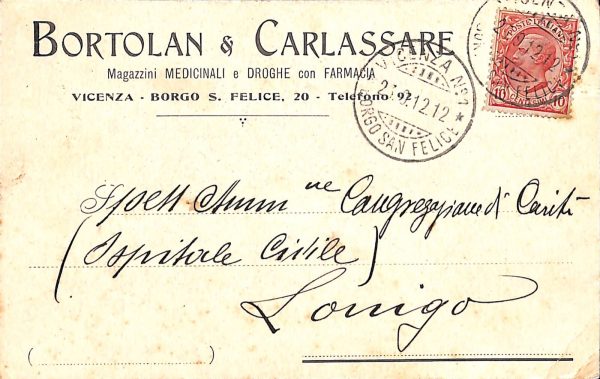 BORTOLAN & CARLASSARE
Magazzini MEDICINALI e DROGHE con FARMACIA
VICENZA - BORGO S. FELICE, 20 - Telefono 97
VICENZA No 1
12.12
BORGO SAN FELICE
POSTE ITALIANE
10 10
FELICE
Spett Amm ne Congregazione di Carità
(Ospitale Civile)
Lonigo